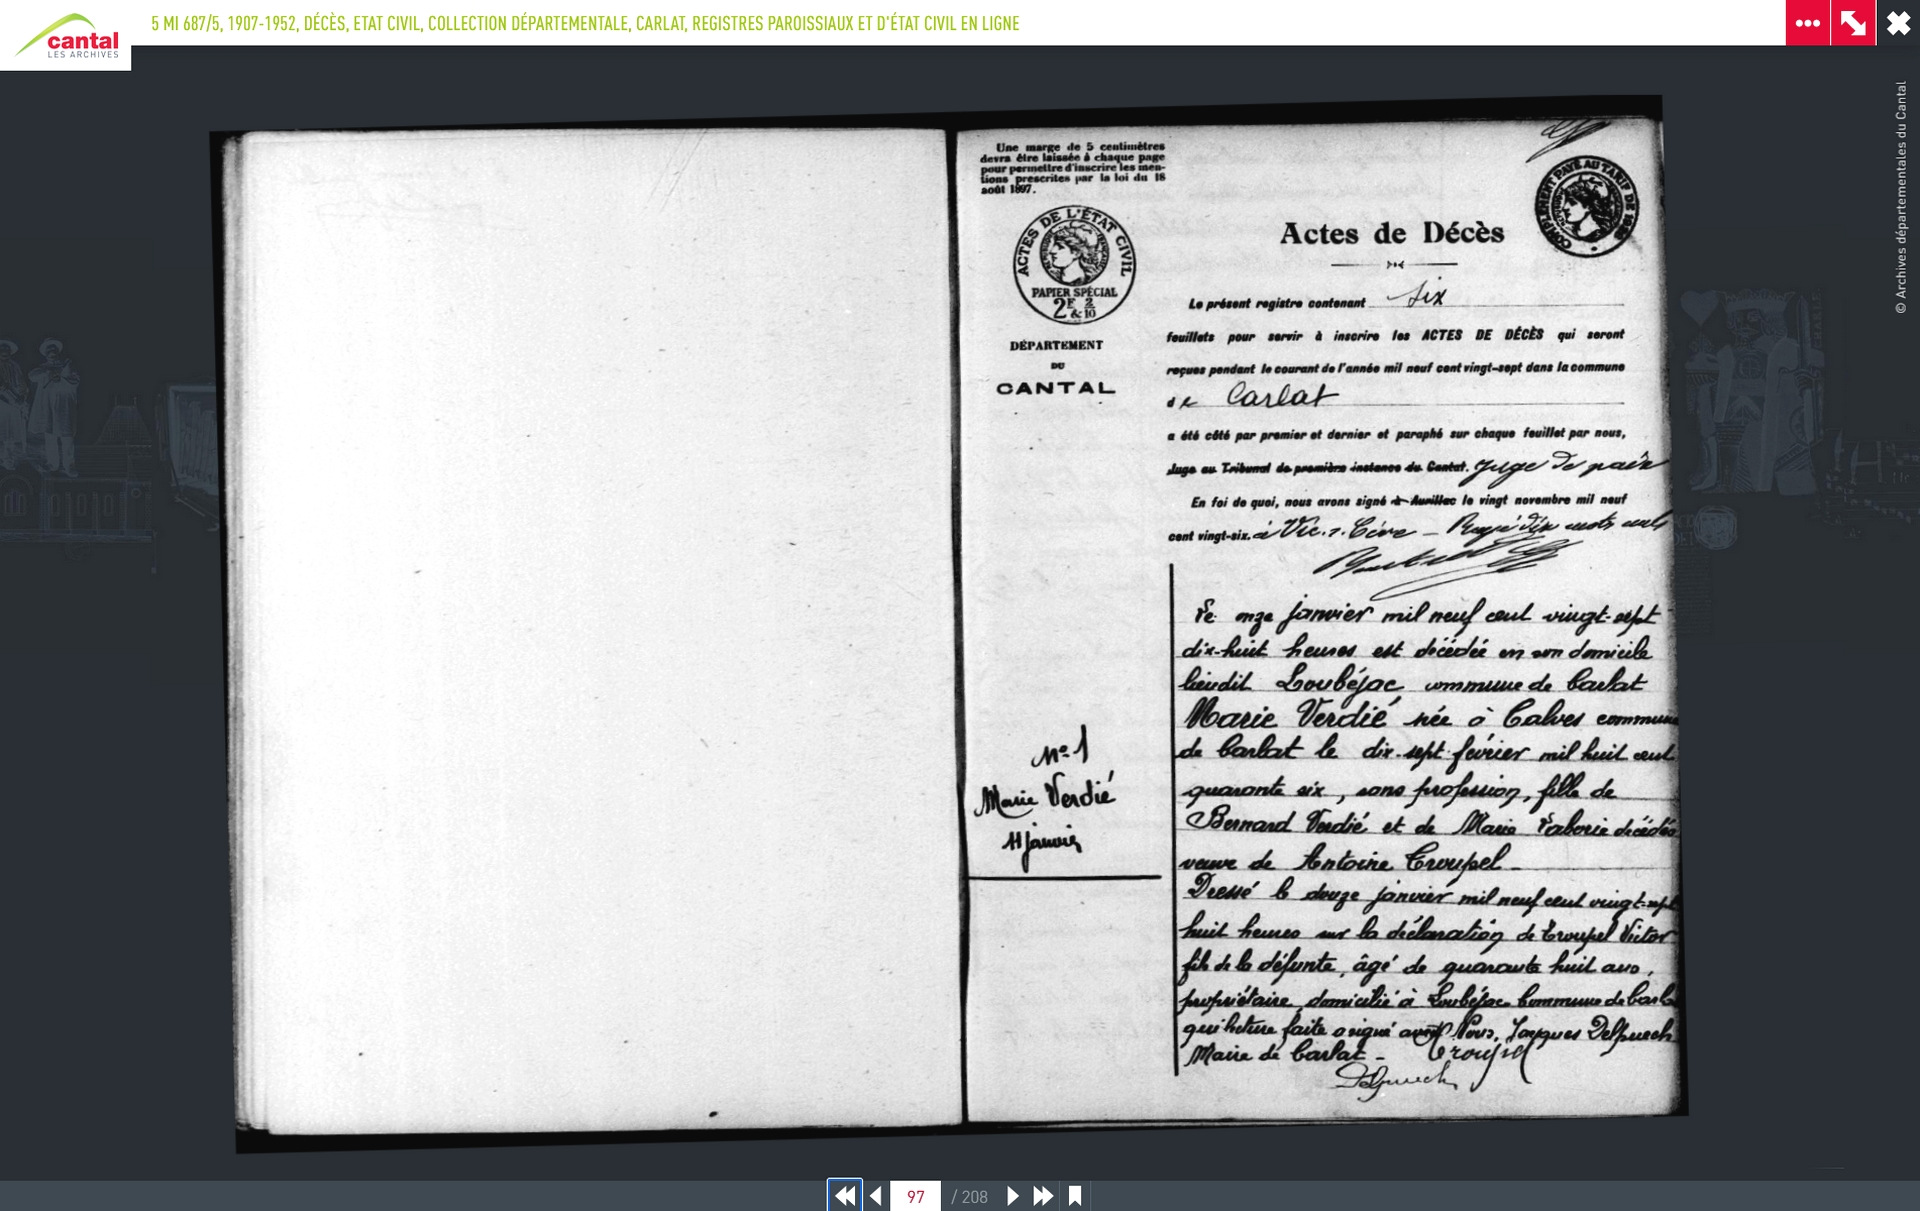 5 MI 687/5, 1907-1952, DÉCÈS, ETAT CIVIL, COLLECTION DÉPARTEMENTALE, CARLAT, REGISTRES PAROISSIAUX ET D'ÉTAT CIVIL EN LIGNE
cantal
LES ARCHIVES
© Archives départementales du Cantal
Une marge de 5 centimètres
devra être laissée à chaque page
pour permettre d'inscrire les men-
tions prescrites par la loi du 18
août 1897.
ACTES DE L'ÉTAT CIVIL
PAPIER SPÉCIAL
2F 2
& 10
DÉPARTEMENT
DU
CANTAL
COMPLÉMENT PAYÉ AU TARIF DE
Actes de Décès
Le présent registre contenant six
feuillets pour servir à inscrire les ACTES DE DÉCÈS qui seront
reçues pendant le courant de l'année mil neuf cent vingt-sept dans la commune
de Carlat
a été côté par premier et dernier et paraphé sur chaque feuillet par nous,
Juge au Tribunal de première instance du Cantal. juge de paix
En foi de quoi, nous avons signé à Aurillac le vingt novembre mil neuf
cent vingt-six. à Vic-s-Cère - Rayé dix mots nuls
N° 1
Marie Verdié
11 janvier
Le onze janvier mil neuf cent vingt-sept
dix-huit heures est décédée en son domicile
lieudit Loubéjac commune de Carlat
Marie Verdié née à Calves commune
de Carlat le dix-sept février mil huit cent
quarante six, sans profession, fille de
Bernard Verdié et de Marie Laborie décédés
veuve de Antoine Troupel -
Dressé le douze janvier mil neuf cent vingt-sept
huit heures sur la déclaration de Troupel Victor
fils de la défunte, âgé de quarante huit ans,
propriétaire, domicilié à Loubéjac Commune de Carlat
qui lecture faite a signé avec Nous, Jacques Delpuech
Maire de Carlat - Troupel
Delpuech
97 / 208